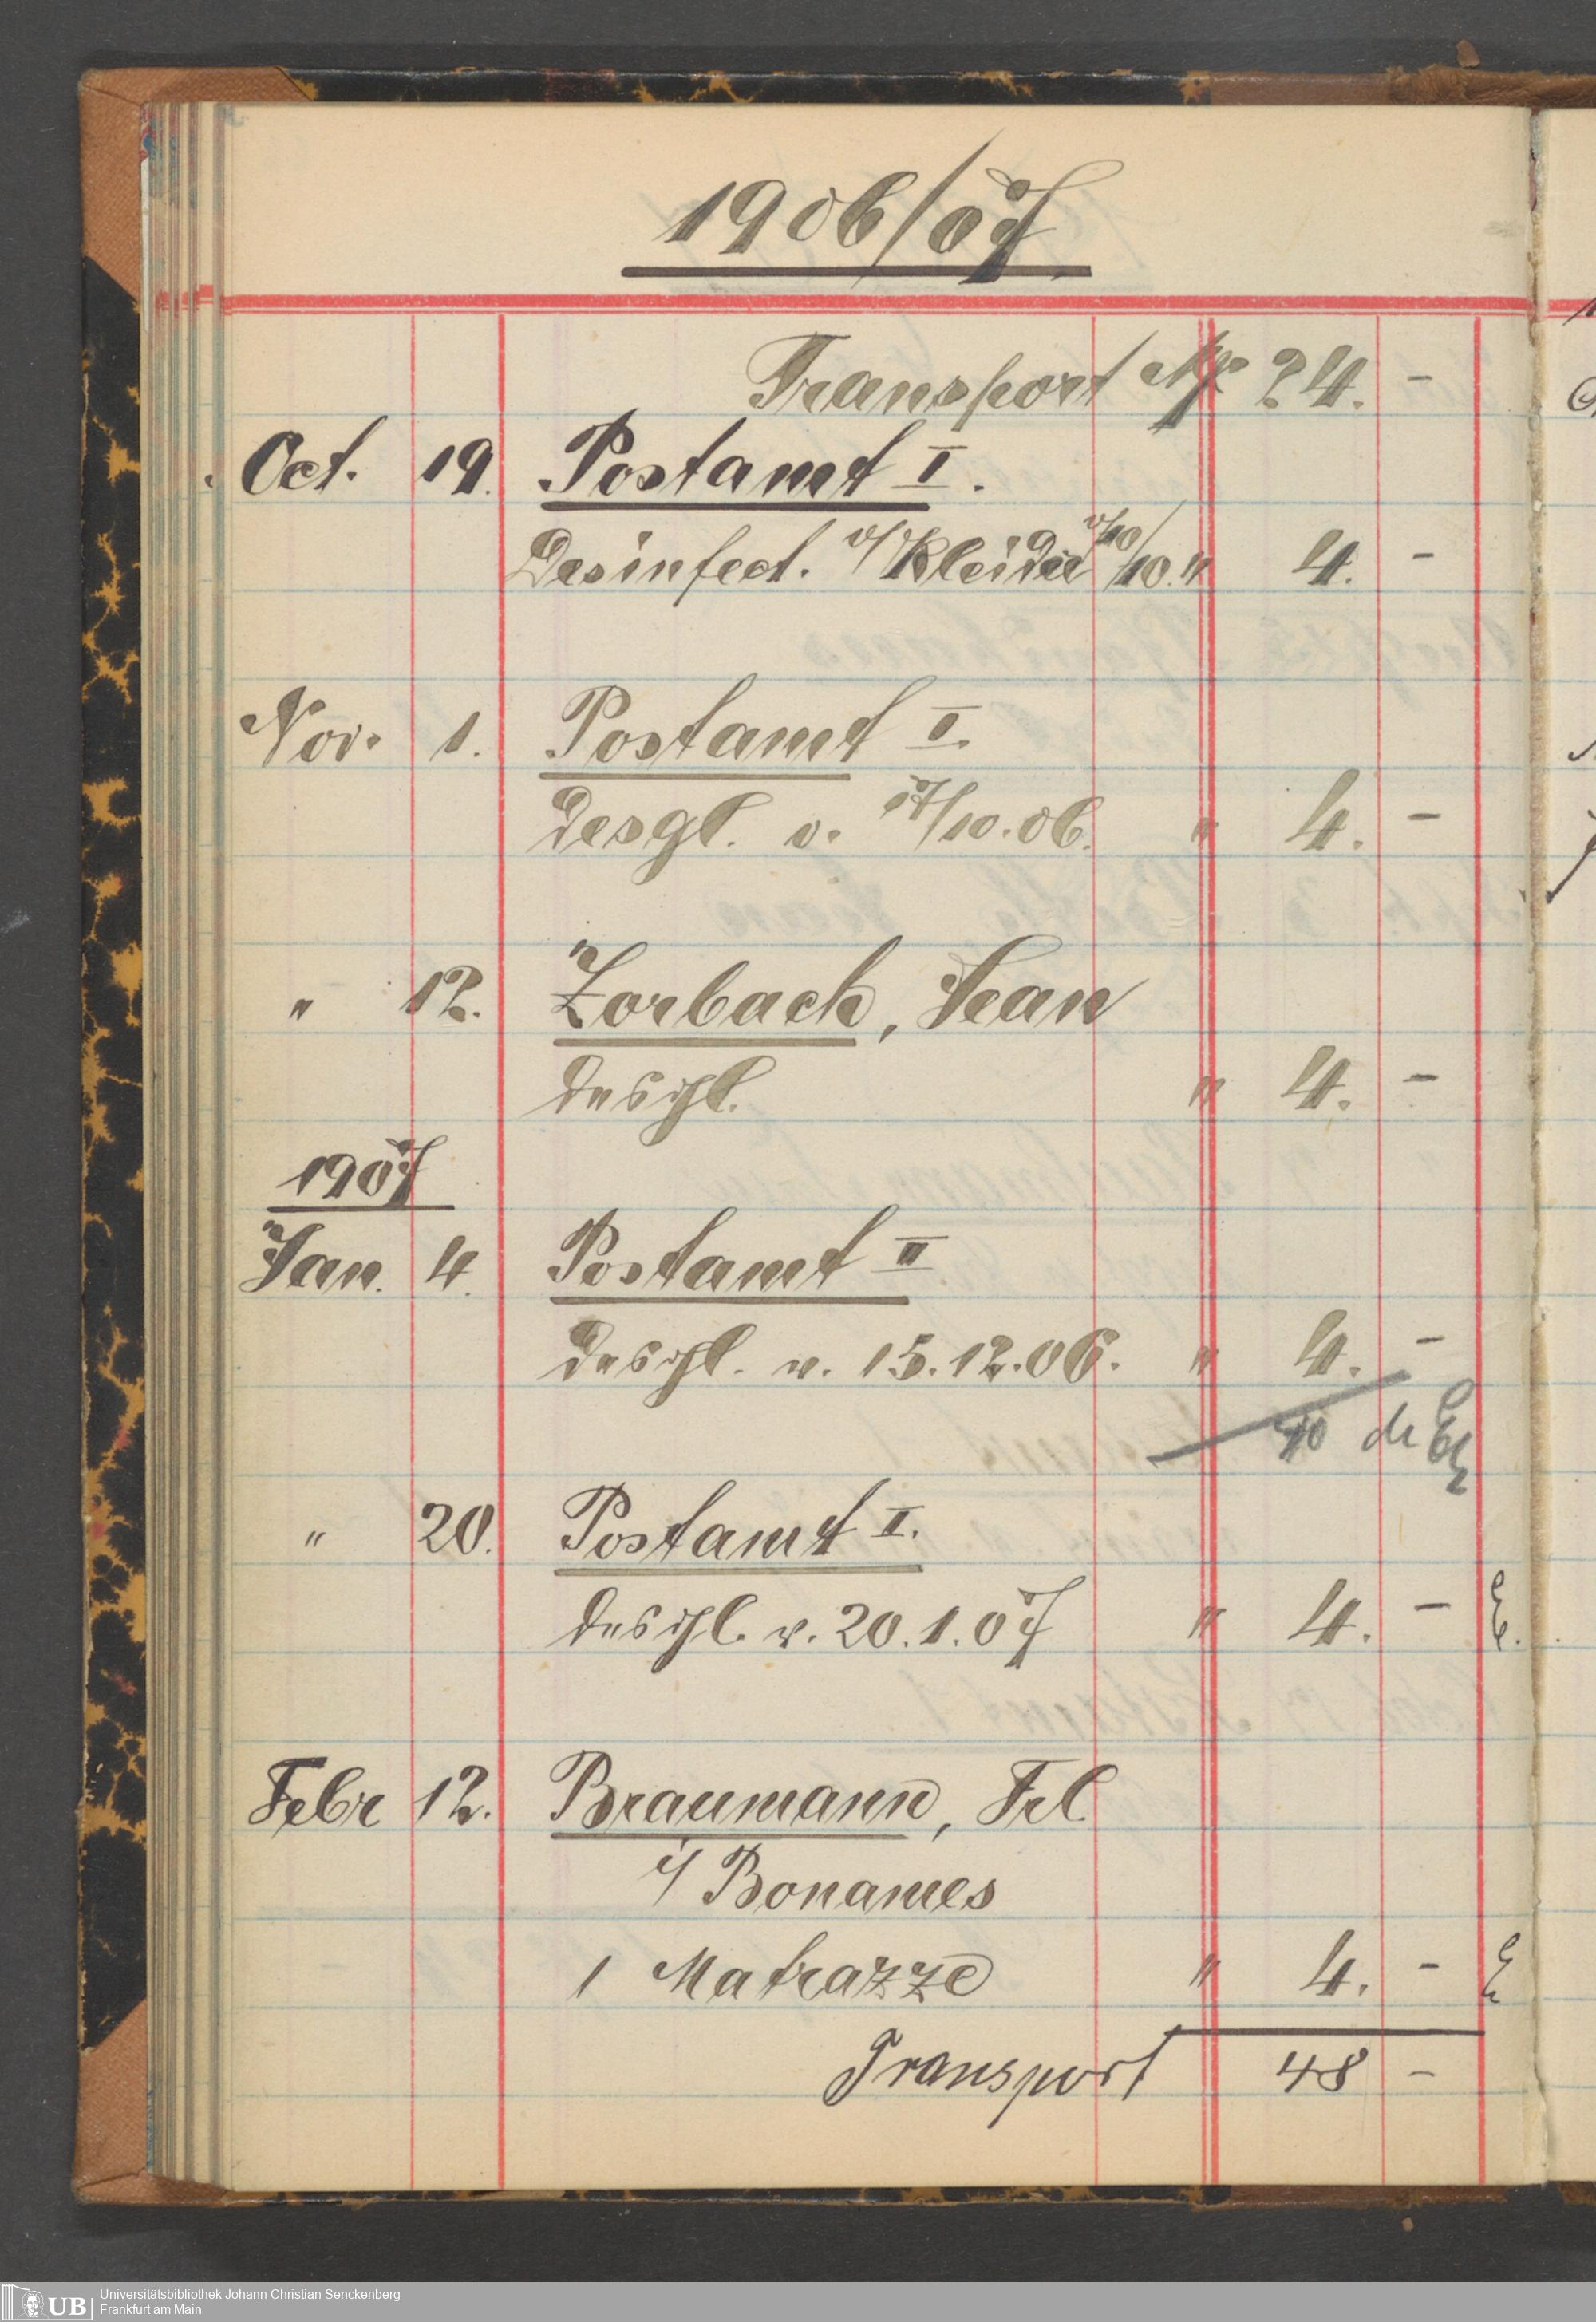 1906/07
Transport M 24. -
Oct. 19. Postamt I.
Desinfect. v/Kleider 10/10. " 4. -
Nov. 1. Postamt I.
desgl. v. 17/10.06. " 4. -
" 12. Zorbach, Jean
desgl. " 4. -
1907
Jan. 4. Postamt II
desgl. v. 15.12.06. " 4. -
40
" 20. Postamt I.
desgl. v. 20.1.07 " 4. -
Febr 12. Braumann, Frl.
i/ Bonames
1 Matrazze " 4. -
Transport 48 -
UB Universitätsbibliothek Johann Christian Senckenberg
Frankfurt am Main